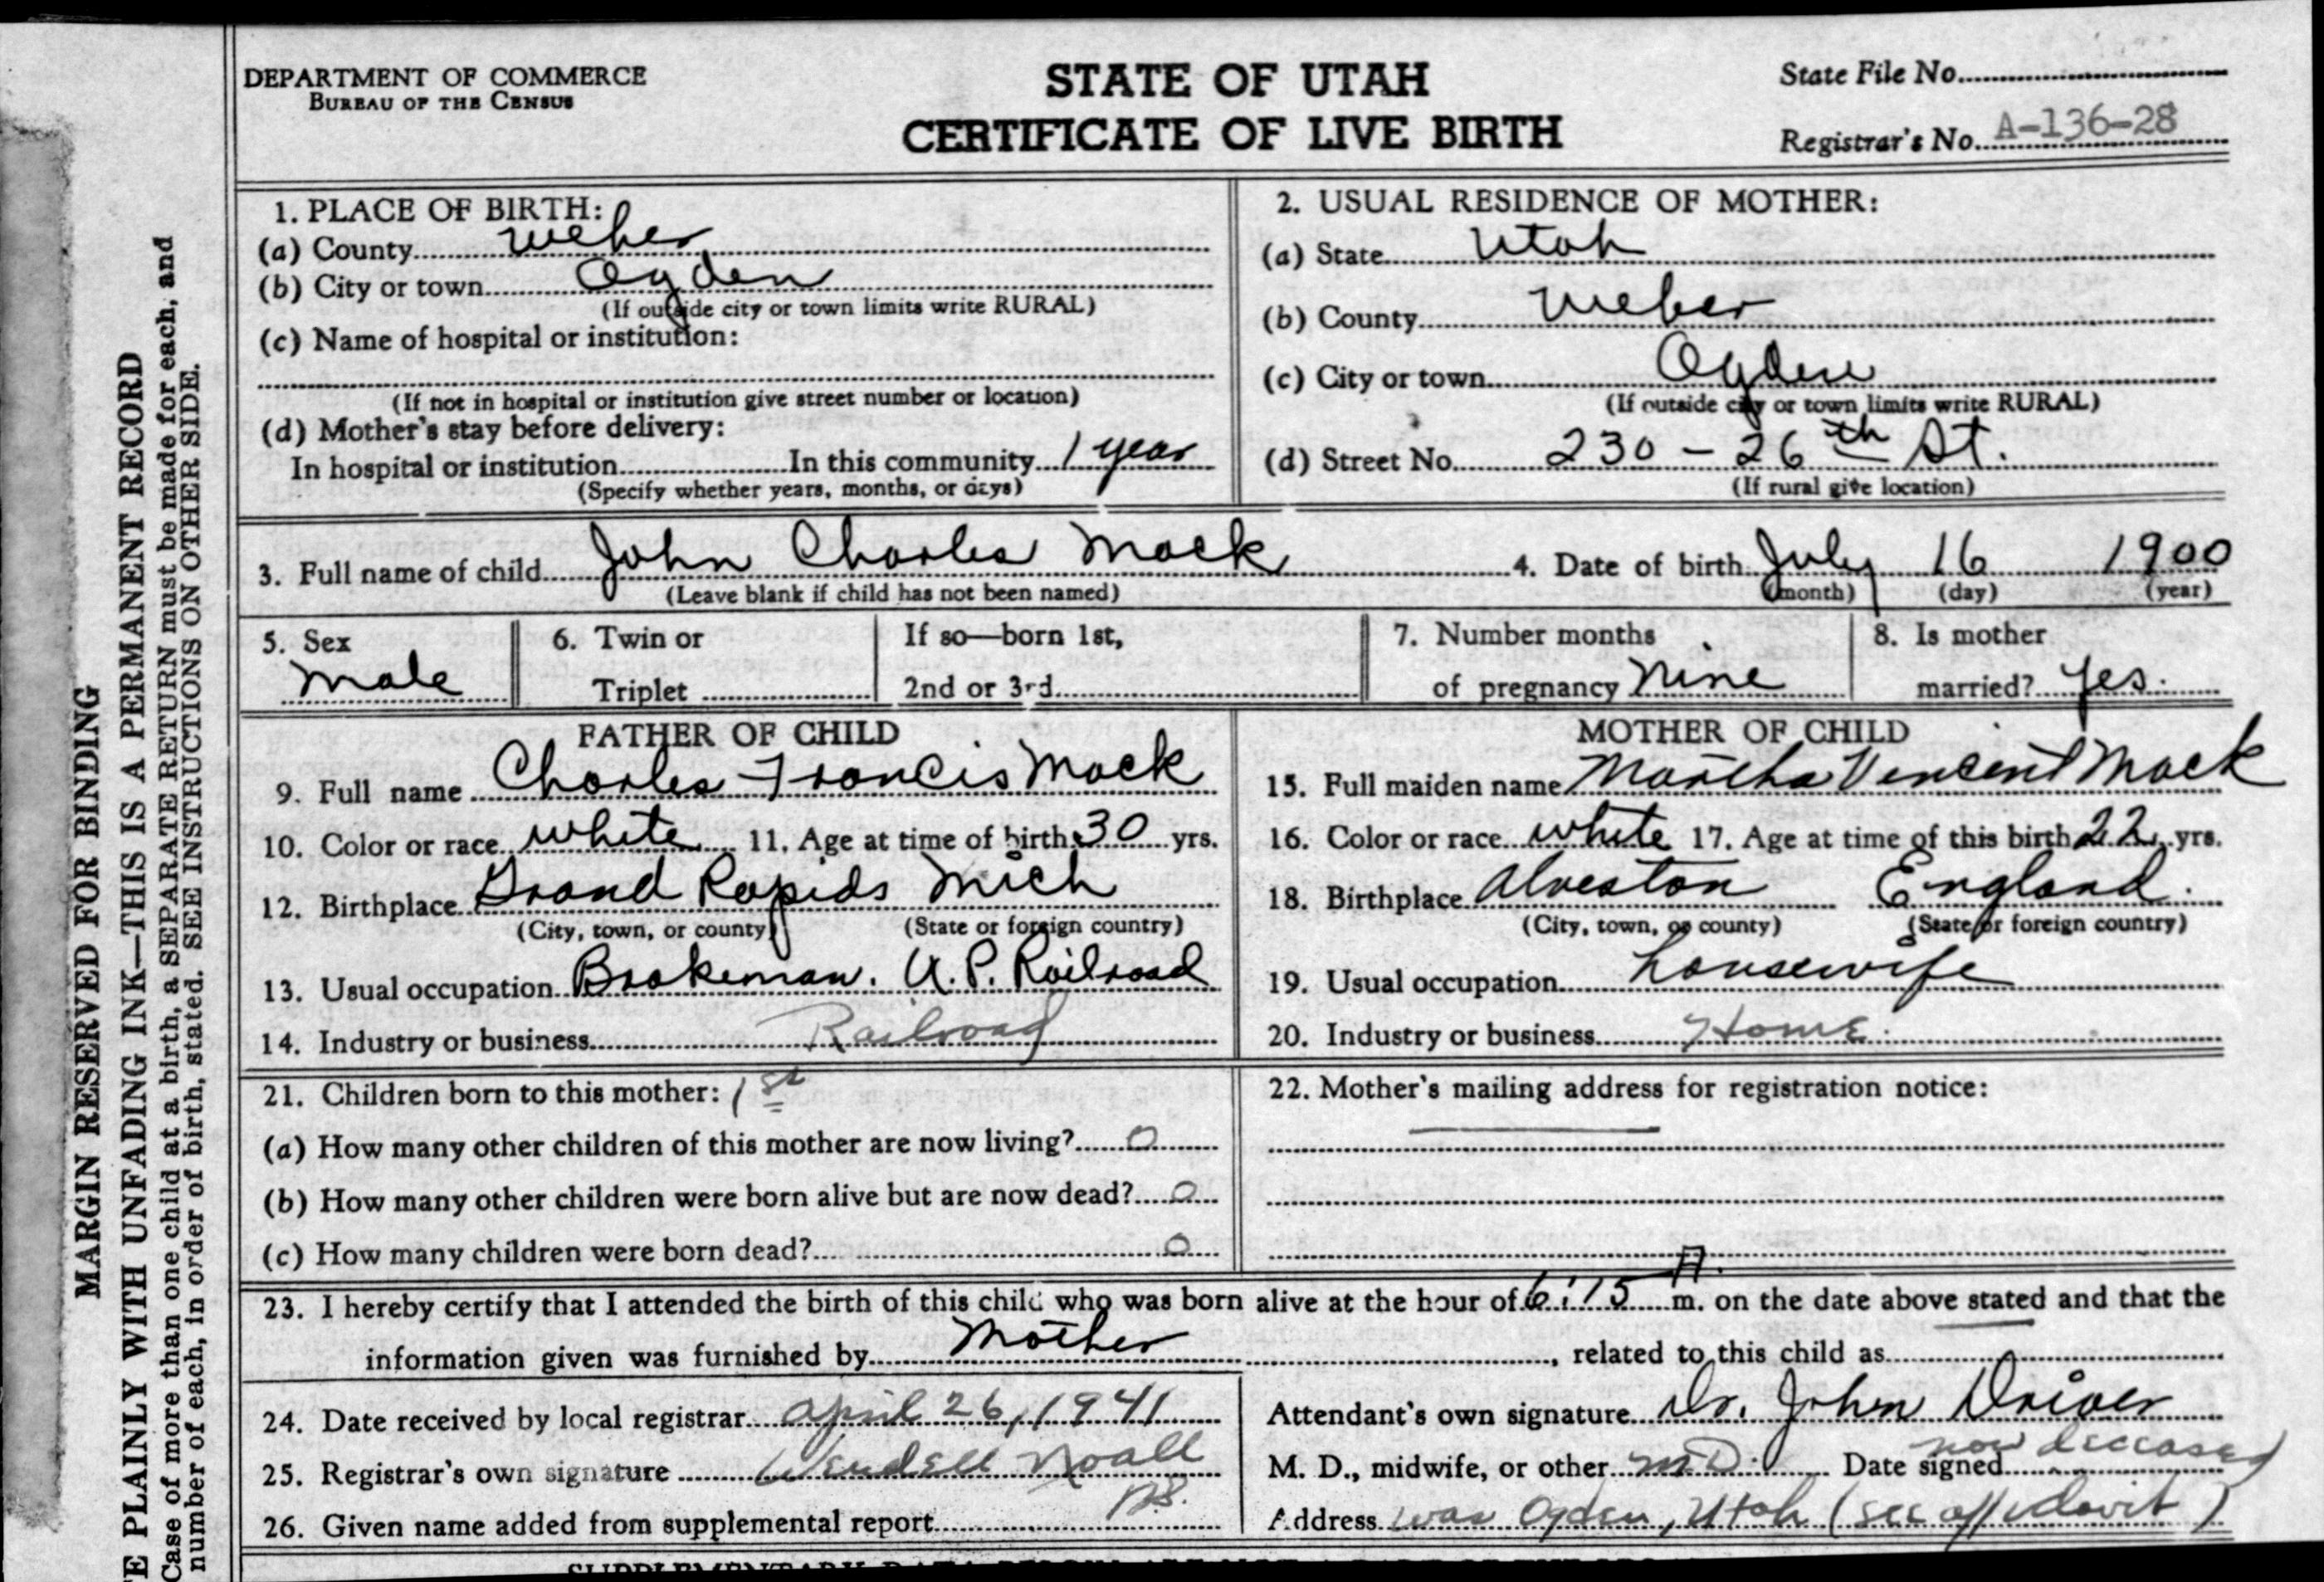 DEPARTMENT OF COMMERCE
BUREAU OF THE CENSUS
STATE OF UTAH
CERTIFICATE OF LIVE BIRTH
State File No.
Registrar's No. A-136-28
MARGIN RESERVED FOR BINDING
TE PLAINLY WITH UNFADING INK—THIS IS A PERMANENT RECORD
Case of more than one child at a birth, a SEPARATE RETURN must be made for each, and
number of each, in order of birth, stated. SEE INSTRUCTIONS ON OTHER SIDE.
1. PLACE OF BIRTH:
(a) County Weber
(b) City or town Ogden
(If outside city or town limits write RURAL)
(c) Name of hospital or institution:
(If not in hospital or institution give street number or location)
(d) Mother's stay before delivery:
In hospital or institution In this community 1 year
(Specify whether years, months, or days)
2. USUAL RESIDENCE OF MOTHER:
(a) State Utah
(b) County Weber
(c) City or town Ogden
(If outside city or town limits write RURAL)
(d) Street No. 230 - 26th St.
(If rural give location)
3. Full name of child John Charles Mack 4. Date of birth July 16 1900
(Leave blank if child has not been named) (month) (day) (year)
5. Sex Male
6. Twin or
Triplet
If so—born 1st,
2nd or 3rd
7. Number months
of pregnancy Nine
8. Is mother
married? Yes.
FATHER OF CHILD
9. Full name Charles Francis Mack
10. Color or race white 11. Age at time of birth 30 yrs.
12. Birthplace Grand Rapids Mich
(City, town, or county) (State or foreign country)
13. Usual occupation Brakeman. U.P. Railroad
14. Industry or business Railroad
MOTHER OF CHILD
15. Full maiden name Martha Vencent Mack
16. Color or race white 17. Age at time of this birth 22 yrs.
18. Birthplace Alveston England.
(City, town, or county) (State or foreign country)
19. Usual occupation housewife
20. Industry or business Home.
21. Children born to this mother: 1st
(a) How many other children of this mother are now living? 0
(b) How many other children were born alive but are now dead? 0
(c) How many children were born dead? 0
22. Mother's mailing address for registration notice:
23. I hereby certify that I attended the birth of this child who was born alive at the hour of 6:15 A. m. on the date above stated and that the
information given was furnished by Mother, related to this child as
24. Date received by local registrar April 26, 1941
25. Registrar's own signature Wendell Noall
26. Given name added from supplemental report
Attendant's own signature Dr. John Driver
now deceased
M. D., midwife, or other M.D. Date signed
Address was Ogden, Utah (see affidavit)